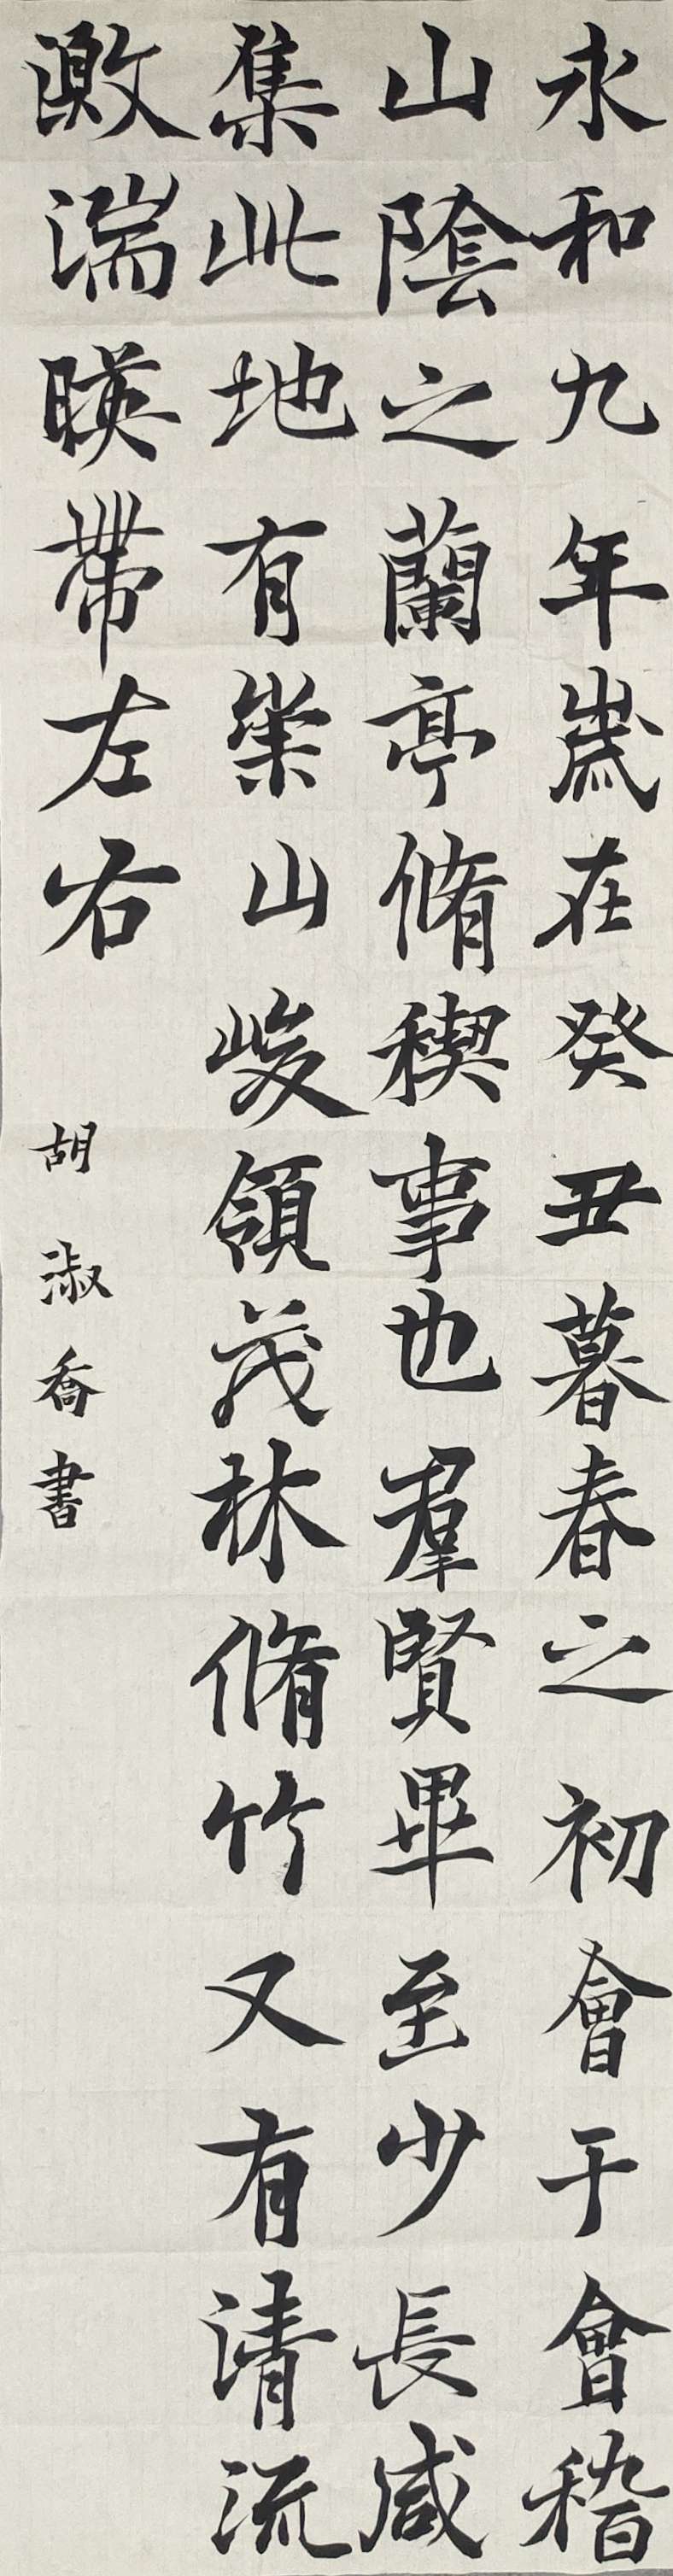 永和九年歲在癸丑暮春之初會于會稽
山陰之蘭亭脩稧事也羣賢畢至少長咸
集此地有崇山峻領茂林脩竹又有清流
激湍暎帶左右
胡淑喬書